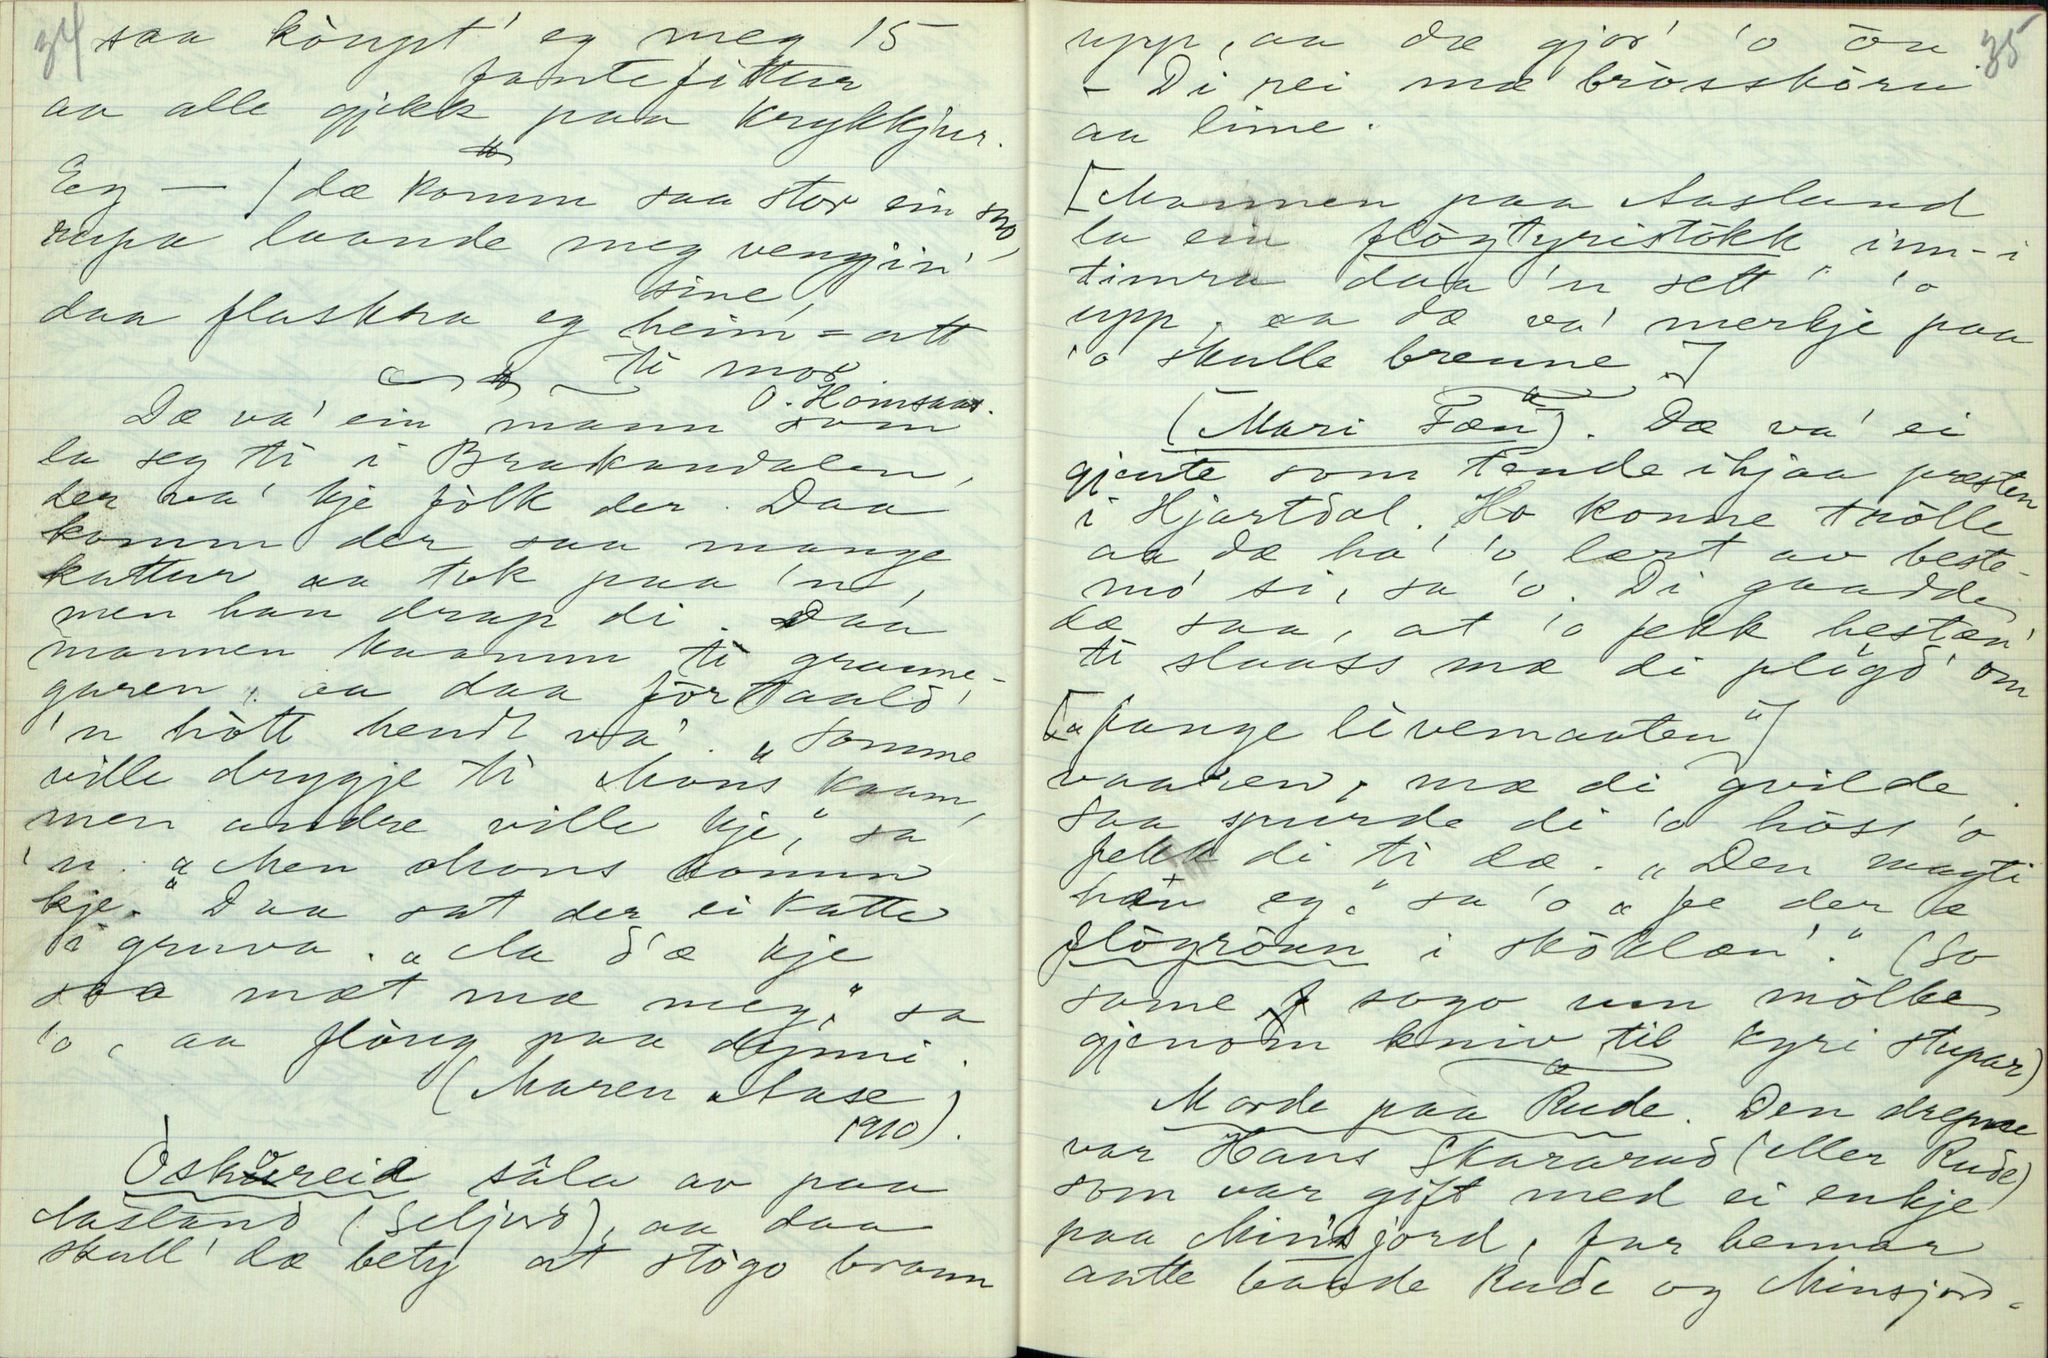 34
saa köupt' eg meg 15
fantefittur
aa alle gjekk paa krykkjur.
Eg — / dæ komm saa stor ein sno,
rapa laande meg vengjin'
sine,
daa flaskra eg heim-att
ti mor.
O. Homsaas.
Dæ va' ein mann som
la seg ti i Brakandalen,
der va' kje fólk der. Daa
komm der saa mange
kattur aa tok paa 'n,
men han drap di. Daa
mannen kaamm ti granne-
garen, aa daa förtaald'
'n hótt hendt va'. „Somme
ville drygje ti Mons kaam,
men andre ville kje," sa
'n. „Men Mons komm
kje." Daa sat der ei katte
i gruva. „Aa d'æ kje
saa mæt mæ meg," sa
'o, aa flöug paa dynni.
(Maren Aase
1910).
Óskoreid sála av paa
Aasland (Seljord), aa daa
skull' dæ bety at stógo brann
35
upp, aa dæ gjor' 'o óu.
– Di rei mæ brósskóru
aa lime.
[Mannen paa Aasland
la ein flógtyristókk inn-i
timra daa 'n sett' 'o
upp, aa dæ va' merkje paa
'o skulle brenne.]
(Mari Fæn). Dæ va' ei
gjente som tende ihjaa presten
i Hjartdal. Ho konne trólle
aa dæ ha' 'o lært av beste-
mo' si, sa 'o. Di gaadde
dæ saa, at 'o fekk hestan'
ti slaass mæ di plógd' om
[„fange livemaaten"]
vaaren, mæ di qvilde.
Saa spurde di 'o hóss 'o
fekk di ti dæ. „Den magti
hæv eg," sa 'o „fe der æ
flógróun i skóklan'." (So
same sogo um mólke
gjenom kniv til kyri stupar)
Morde paa Rude. Den drepne
var Hans Skararud (eller Rude)
som var gift med ei enkje
paa Minsjord, far hennar
aatte baade Rude og Minsjord.